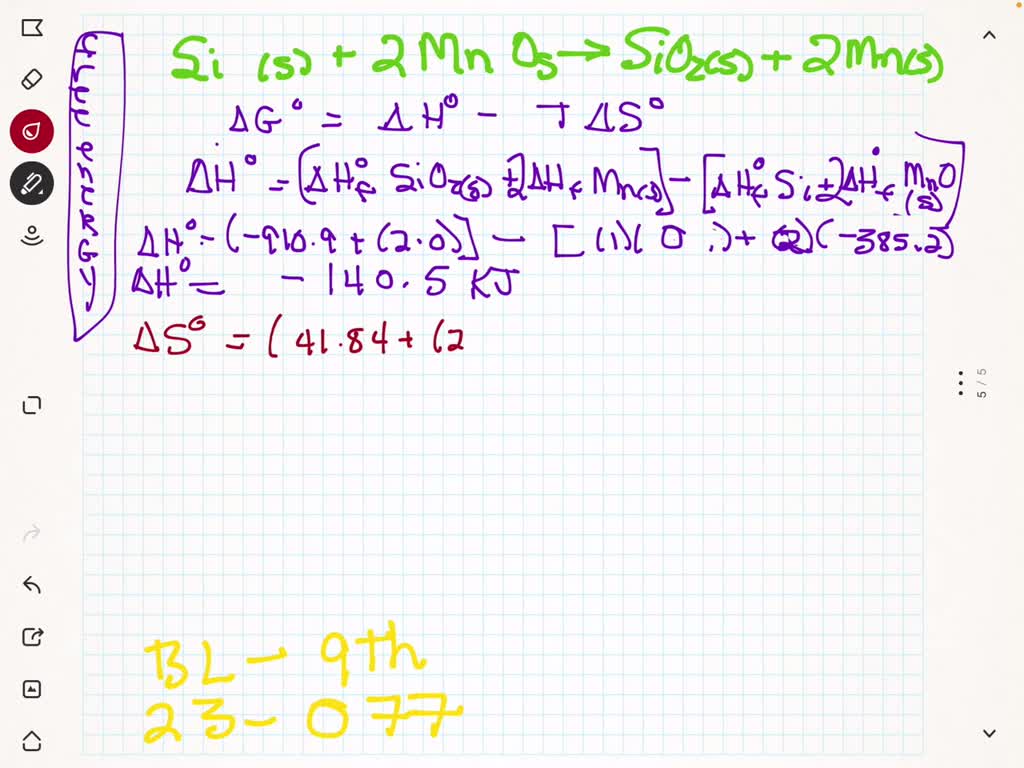 Si (s) + 2 Mn O(s) → SiO2(s) + 2Mn(s)
ΔG° = ΔH° - TΔS°
ΔH° = [ΔHf° SiO2(s) + 2ΔHf Mn(s)] - [ΔHf° Si + 2ΔHf° MnO (s)]
ΔH° = (-910.9 + (2.0)] - [(1)(0.) + (2)(-385.2)
ΔH° = -140.5 KJ
ΔS° = (41.84 + (2
BL - 9th
23 - 077
5 / 5